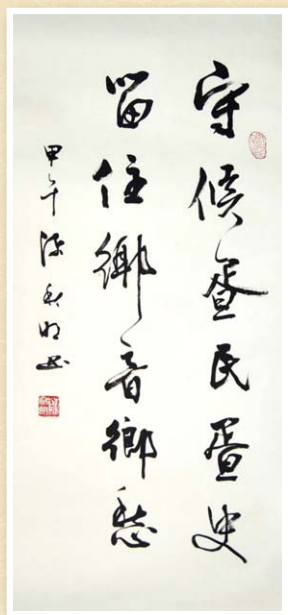 守候疍民疍史
留住鄉音鄉愁
甲午陈明书